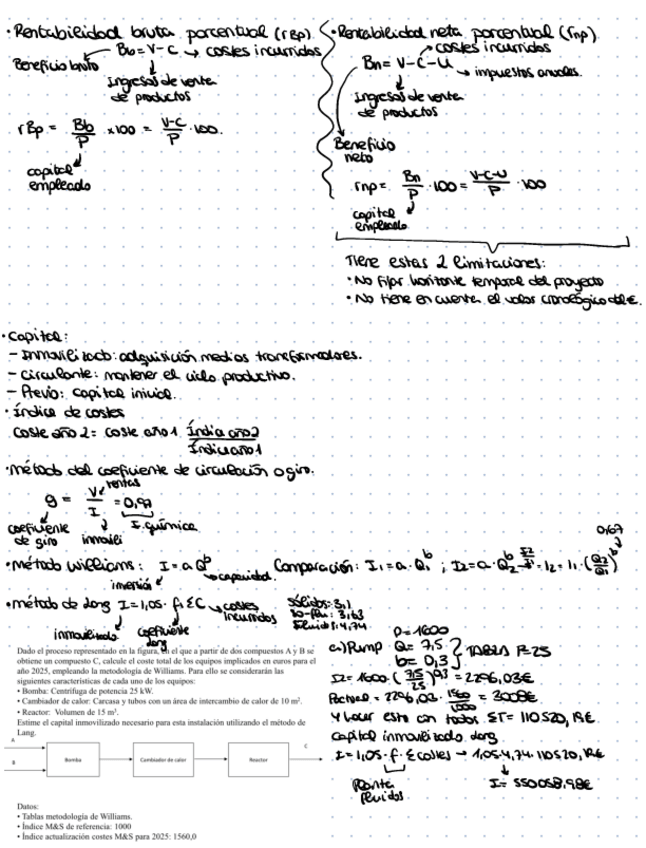 • Rentabilidad bruta porcentual (rBp)
Bb = V - C → costes incurridos
Beneficio bruto
ingresos de venta
de productos
rBp = Bb/P × 100 = V-C/P · 100.
capital
empleado
• Rentabilidad neta porcentual (rnp)
costes incurridos
Bn = V - C - U → impuestos anuales.
ingresos de venta
de productos
Beneficio
neto
rnp = Bn/P · 100 = V-C-U/P · 100
capital
empleado
Tiene estas 2 limitaciones:
• No fijar horizonte temporal del proyecto
• No tiene en cuenta el valor cronológico del €.
• Capital:
- Inmovilizado: adquisición medios transformadores.
- Circulante: mantener el ciclo productivo.
- Previo: capital inicial.
• índice de costes
Coste año 2 = Coste año 1 índice año 2/índice año 1
• método del coeficiente de circulación o giro.
g = V/I = 0,97
ventas
coeficiente
de giro
inmovili
I. química
• método Williams: I = a Q^b
inversión
capacidad.
Comparación: I1 = a · Q1^b ; I2 = a · Q2^b I2/I1 = I2 = I1 · (Q2/Q1)^b
0,67
• método de Lang I = 1,05 · f · ΣC → costes
incurridos
inmovilizado
coeficiente
Lang
Sólidos: 3,1
So-flu: 3,63
Fluidos: 4,74
Dado el proceso representado en la figura, en el que a partir de dos compuestos A y B se
obtiene un compuesto C, calcule el coste total de los equipos implicados en euros para el
año 2025, empleando la metodología de Williams. Para ello se considerarán las
siguientes características de cada uno de los equipos:
• Bomba: Centrífuga de potencia 25 kW.
• Cambiador de calor: Carcasa y tubos con un área de intercambio de calor de 10 m².
• Reactor: Volumen de 15 m³.
Estime el capital inmovilizado necesario para esta instalación utilizando el método de
Lang.
A
B
Bomba
Cambiador de calor
Reactor
C
Datos:
• Tablas metodología de Williams.
• Índice M&S de referencia: 1000
• Índice actualización costes M&S para 2025: 1560,0
P = 1600
a) Pump Q = 7,5
b = 0,3
TABLA P = 25
I2 = 1600 · (7,5/25)^0,3 = 2296,03€
Pactual = 2296,03 · 1560/1000 = 3008€
Y hacer esto con todos ΣT = 110520,19€
Capital inmovilizado Lang
I = 1,05 · f · Σcostes → 1,05 · 4,74 · 110520,19€
Planta
fluidos
I = 550058,98€